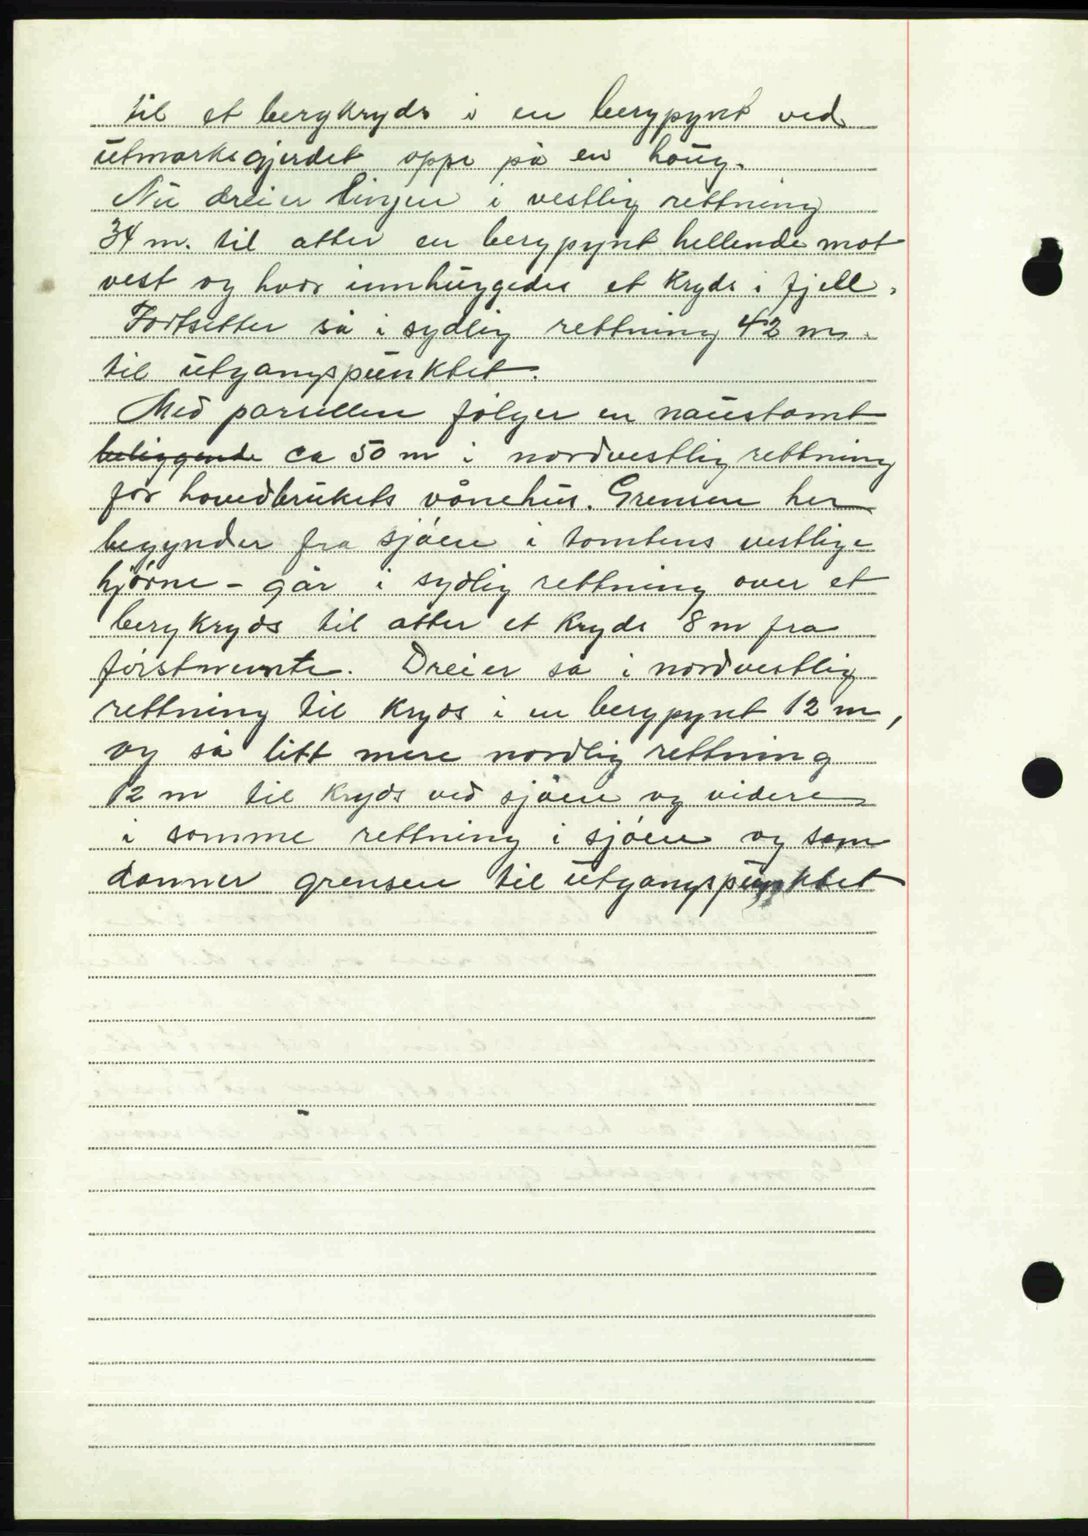 til et bergkryds i en bergpynt ved
utmarksgjerdet oppe på en houg.
Nu dreier linjen i vestlig rettning
34 m. til atter en bergpynt hellende mot
vest og hvor innhuggedes et kryds i fjell.
Fortsetter så i sydlig rettning 42 m.
til utgangspunktet.
Med parsellen følger en naustomt
beliggende ca 50 m i nordvestlig rettning
for hovedbrukets vånehus. Grensen her
begynder fra sjøen i tomtens vestlige
hjørne - går i sydlig rettning over et
bergkryds til atter et kryds 8 m fra
førstnevnte. Dreier så i nordvestlig
rettning til kryds i en bergpynt 12 m,
og så litt mere nordlig rettning
12 m til kryds ved sjøen og videre
i samme rettning i sjøen og som
danner grensen til utgangspunktet